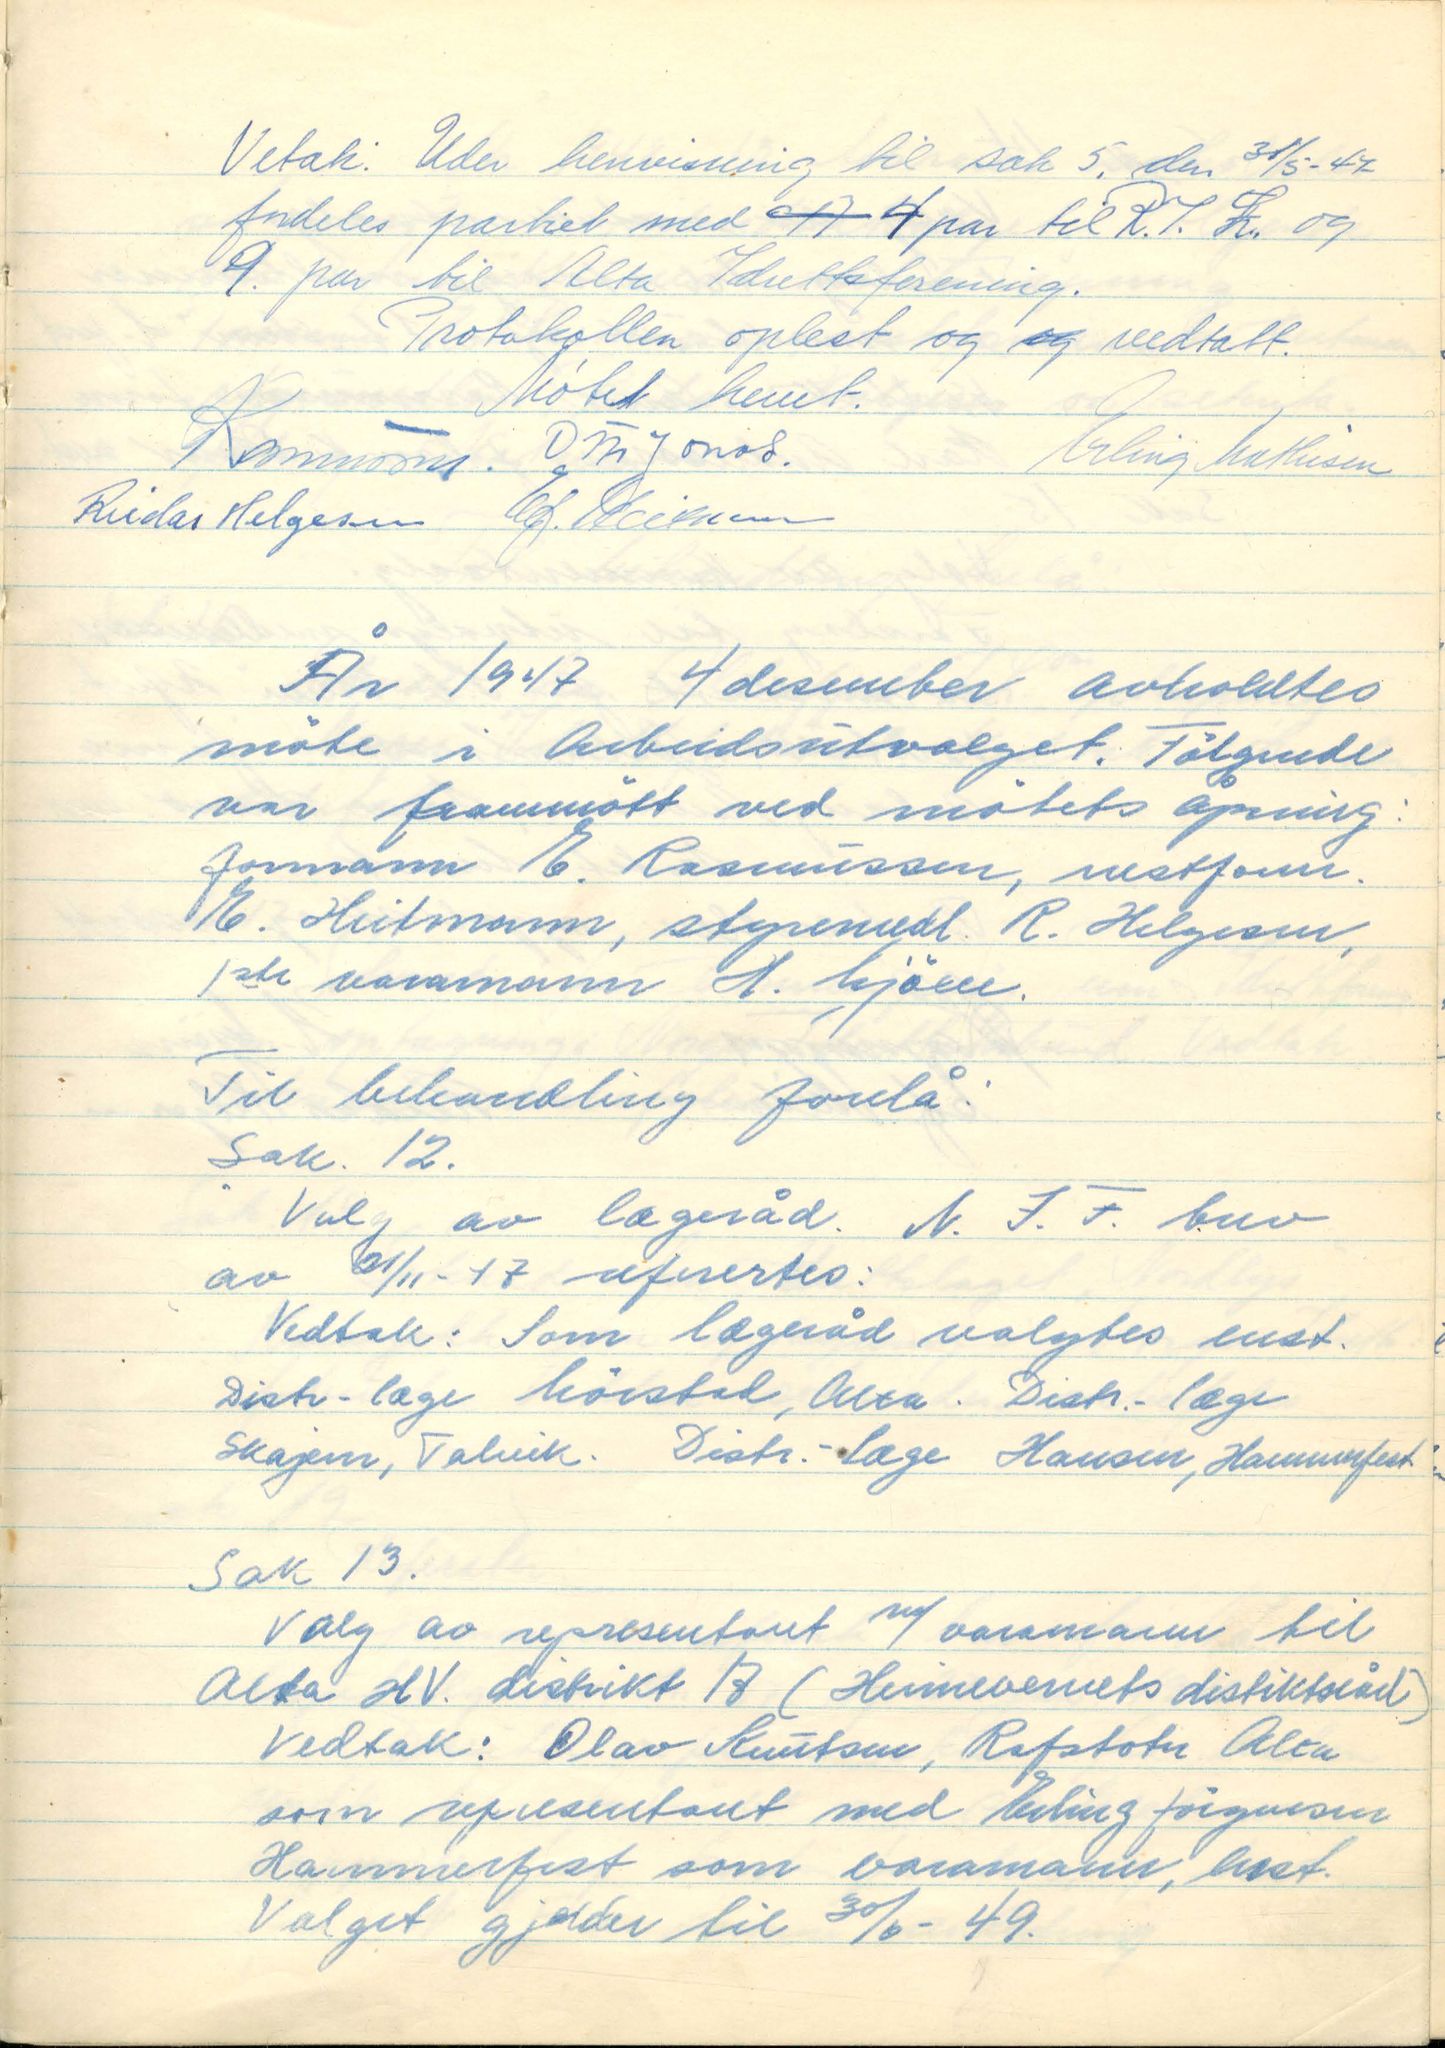 Vetak: Uder henvisning til sak 5. den 31/5-47
fordeles partiet med 4 par til R.I.L. og
9. par til Alta Idrettsforening.
Protokollen oplest og og vedtatt.
Møtet hevet.
Rasmussen. Erling Mathisen
Reidar Helgesen E. Heitmann
År 1947 4 desember avholdtes
möte i Arbeidsutvalget. Fölgende
var frammött ved mötets åpning:
formann E. Rasmussen, nestform.
E. Heitmann, styremedl. R. Helgesen,
1ste varamann H. Kjöen.
Til behandling forelå:
Sak. 12.
Valg av lægeråd. N. I. F. brev
av 21/11-47 refertes:
Vedtak: Som lægeråd valgtes enst.
Distr-læge Körstad, Alta. Distr.-læge
Skajem, Talvik. Distr.-læge Hansen, Hammerfest
Sak 13.
Valg av representant m/ varamann til
Alta HV. distrikt 17 (Heimevernets distiktsråd)
Vedtak: Olav Knutsen, Rafsbotn Alta
som representant med Erling Jörgensen
Hammerfest som varamann, enst.
Valget gjelder til 30/6-49.